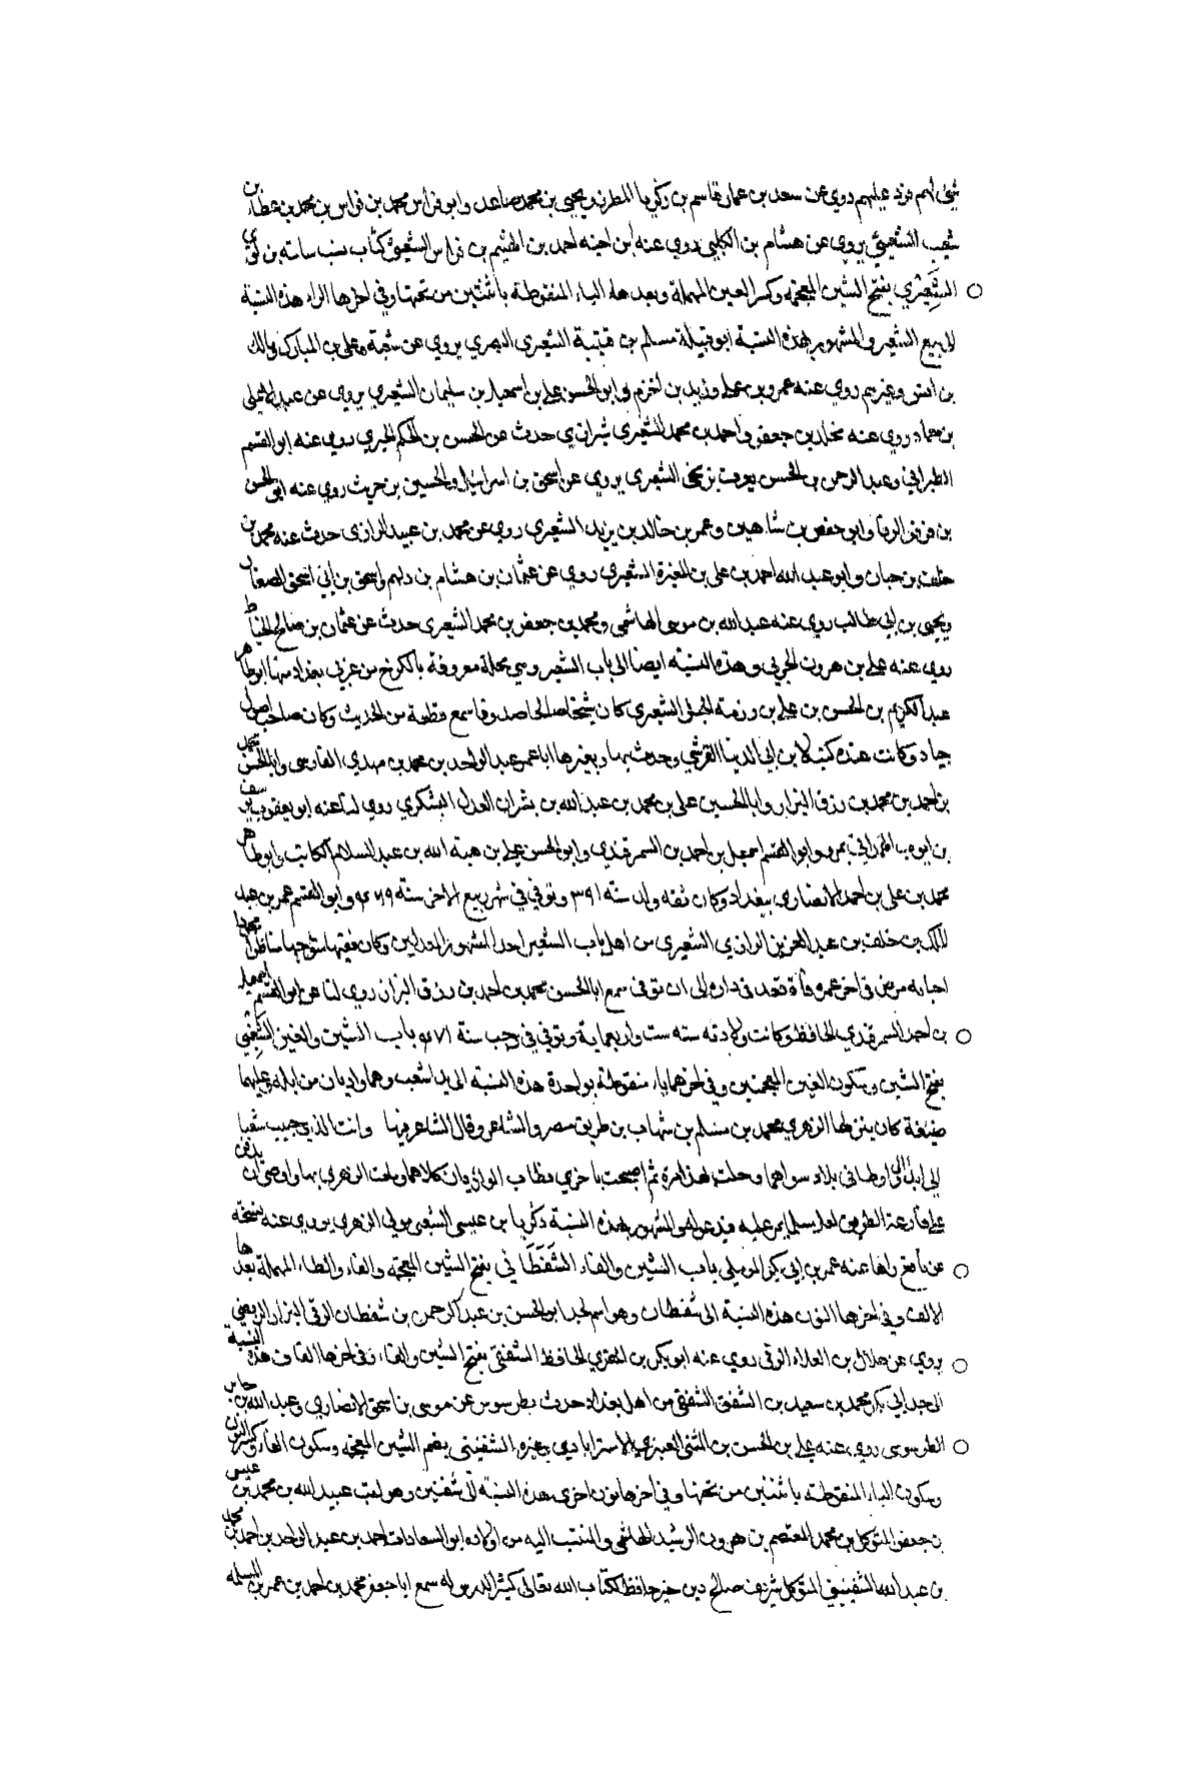 شيئ لهم نزد عليهم روي عن سعد بن عمار قاسم بن زكريا المطرز ويحيى بن محمد صاعد وابو فراس محمد بن فراس بن محمد بن عطا بن
شعيب الشعيثي يروي عن هشام بن الكلبي روي عنه ابن اخيه احمد بن الهيثم بن فراس الشعيثي كتاب نسب سامة بن لوي
الشعيري بفتح الشين المعجمة وكسر العين المهملة وبعدها الياء المنقوطة باثنتين من تحتها وفي اخرها الراء هذه النسبة
لبيع الشعير والمشهور بهذه النسبة ابو قتيبة مسلم بن قتيبة الشعيري البصري يروي عن شعبة وعلي بن المبارك ومالك
بن انس وغيرهم روي عنه عمرو بن علي وزيد بن اخزم وابو الحسن علي بن اسمعيل بن سليمان الشعيري يروي عن عبد الاعلى
بن حماد روي عنه مخلد بن جعفر واحمد بن محمد الشعيري شيرازي حدث عن الحسن بن الحكم الحبري روي عنه ابو القسم
الطبراني وعبد الرحمن بن الحسن يوسف بن يحي الشعيري يروي عن اسحق بن اسرائيل والحسين بن حريث روي عنه ابو الحسن
الرفا وابو حفص بن شاهين وعمر بن خالد بن يزيد الشعيري روي عن محمد بن عبيد الرازي حدث عنه محمد بن
خلف بن حيان وابو عبد الله احمد بن علي بن المغيرة الشعيري روي عن عثمان بن هشام بن دلهم واسحق بن ابي اسحق الصفار
ويحيى بن ابي طالب روي عنه عبد الله بن موسى الهاشمي ومحمد بن جعفر بن محمد الشعيري حدث عن عثمان بن صالح الخياط
روي عنه علي بن هرون الحربي وهذه النسبة ايضا الى باب الشعير وهي محلة معروفة بالكرخ من غربي بغداد منها ابو طاهر
عبد الكريم بن الحسن بن علي بن رزمة الشعيري كان شيخا صالحا صدوقا سمع قطعة من الحديث وكان صاحب اصول
جياد وكانت عنده كتب لابن ابي الدنيا القرشي وحدث بها وبغيرها ابا عمر عبد الواحد بن محمد بن مهدي الفارسي وابا الحسن محمد
بن احمد بن محمد بن رزق البزار وابا الحسين علي بن محمد بن عبد الله بن بشران العدل السكري روي لنا عنه ابو يعقوب يوسف
بن ايوب الهمداني بمرو وابو القسم اسمعيل بن احمد بن السمرقندي وابو الحسن علي بن هبة الله بن عبد السلام الكاتب وابو طاهر
محمد بن علي بن احمد الانصاري ببغداد وكان ثقة ولد سنة ٣٩١ وتوفي في شهر ربيع الاخر سنة ٤٦٩ وابو القسم عمر بن عبد
الملك بن خلف بن عبد العزيز الرازي الشعيري من اهل باب الشعير احد الشهود المعدلين وكان فقيها متوجها مناظرا
اصابه مرض في اخر عمره فقعد في داره الى ان توفي سمع ابا الحسن محمد بن احمد بن رزق البزار روي لنا عن ابو القسم اسمعيل
بن احمد السمرقندي الحافظ وكانت ولادته سنة ست واربعماية وتوفي في رجب سنة ٤٧١ باب الشين والغين الشغبي
بفتح الشين وسكون الغين المعجمتين وفي اخرهما باء منقوطة بواحدة هذه النسبة الى بدا شغب وهما واديان من ايلة وعليهما
ضيعة كان ينزلها الزهري محمد بن مسلم بن شهاب بن طريق مصر والشام وقال الشاعر فيها وانت الذي حببت شغبا
الى بدا الى اوطاني بلاد سواهما وحلت بهذا مرة ثم اصبحت باخرى فطاب الواديان كلاهما ومات الزهري بها واوصى ان يدفن
على قارعة الطريق لعل مسلما يمر عليه فيدعو له والمشهور بهذه النسبة زكريا بن عيسى الشغبي مولى الزهري يروي عنه نسخة
عن نافع رواها عنه عمر بن ابي بكر الموصلي باب الشين والفاء الشفطاني بفتح الشين المعجمة والفاء والطاء المهملة بعدها
الالف وفي اخرها النون هذه النسبة الى شفطان وهو اسم لجد ابو الحسن بن عبد الرحمن بن شفطان الرقي البزار الربضي
يروي عن هلال بن العلاء الرقي روي عنه ابو بكر بن المقري الحافظ الشفقي بفتح الشين والفاء وفي اخرها القاف هذه النسبة
الى جد ابي بكر محمد بن سعيد بن الشفق الشفقي من اهل بغداد حدث بطرسوس عن موسى بن اسحق الانصاري وعبد الله بن جابر
الطرسوسي روي عنه علي بن الحسن بن المثنى العنبري الاسترابادي وغيره الشفنيني بضم الشين المعجمة وسكون الفاء وكسر النون
وسكون الياء المنقوطة باثنتين من تحتها وفي اخرها نون اخرى هذه النسبة الى شفنين وهو لقب عبيد الله بن محمد بن عيسى
بن جعفر المتوكل بن محمد المعتصم بن هرون الرشيد الهاشمي والمنتسب اليه من اولاده ابو السعادات احمد بن عبد الواحد بن احمد بن محمد
بن عبد الله الشفنيني المتوكل شريف صالح دين خير حافظ لكتاب الله تعالى كثير الدرس له سمع ابا جعفر محمد بن احمد بن عمر بن المسلمة